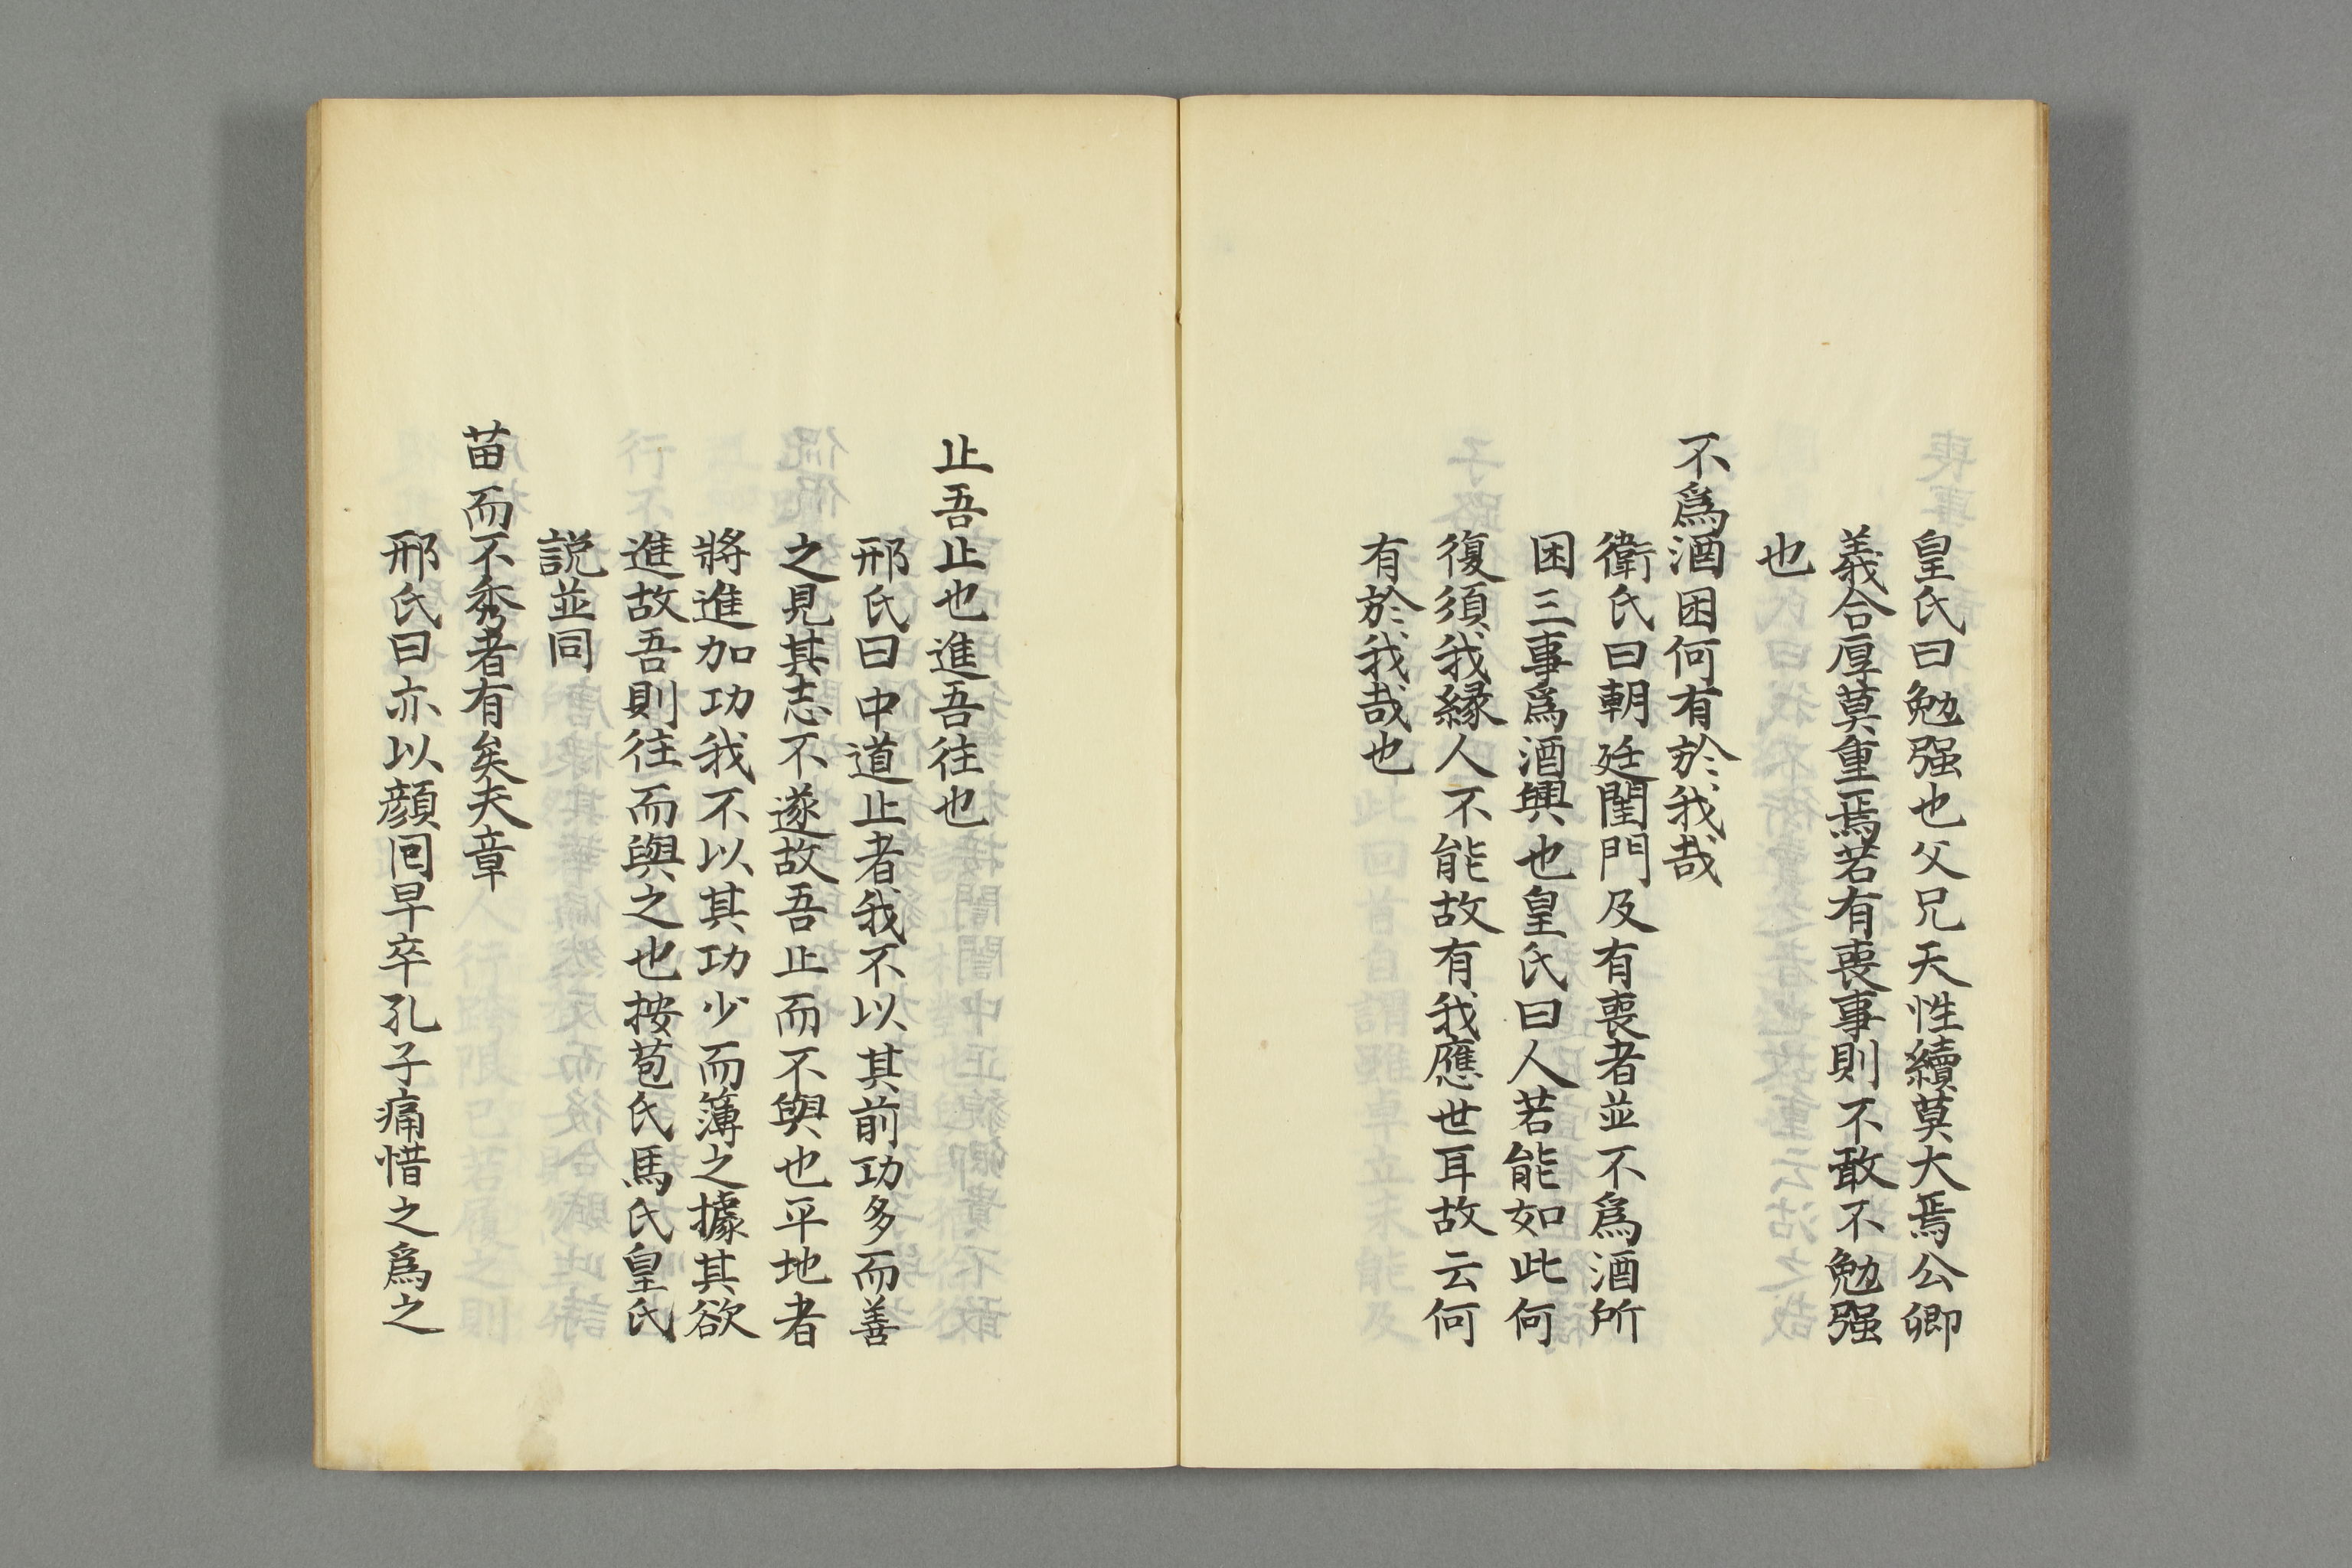 皇氏曰勉强也父兄天性續莫大焉公卿
義合厚莫重焉若有喪事則不敢不勉强
也
不爲酒困何有於我哉
衛氏曰朝廷閨門及有喪者並不爲酒所
困三事爲酒興也皇氏曰人若能如此何
復須我縁人不能故有我應世耳故云何
有於我哉也
止吾止也進吾往也
邢氏曰中道止者我不以其前功多而善
之見其志不遂故吾止而不與也平地者
將進加功我不以其功少而簿之據其欲
進故吾則往而與之也按苞氏馬氏皇氏
説並同
苗而不秀者有矣夫章
邢氏曰亦以顔回早卒孔子痛惜之爲之